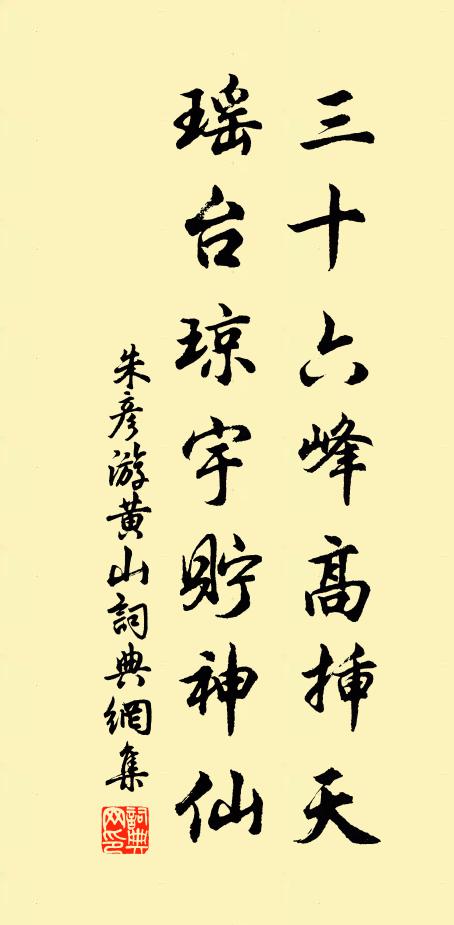 三十六峰高揷天
瑶台琼宇貯神仙
朱彦游黄山詞典網集
詞典網印